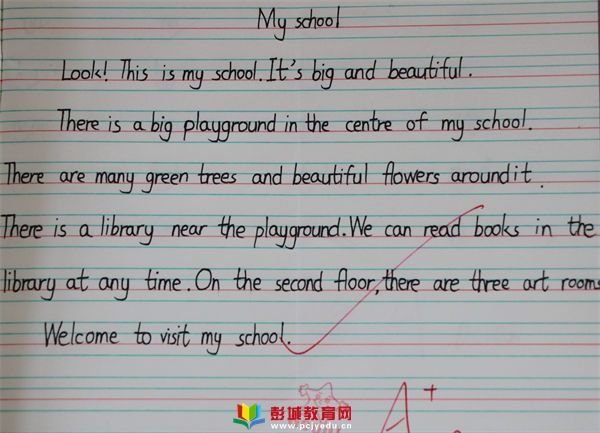 My school
Look! This is my school. It's big and beautiful.
There is a big playground in the centre of my school.
There are many green trees and beautiful flowers around it.
There is a library near the playground. We can read books in the
library at any time. On the second floor, there are three art rooms
Welcome to visit my school.
A+
彭城教育网
www.pcjyedu.cn